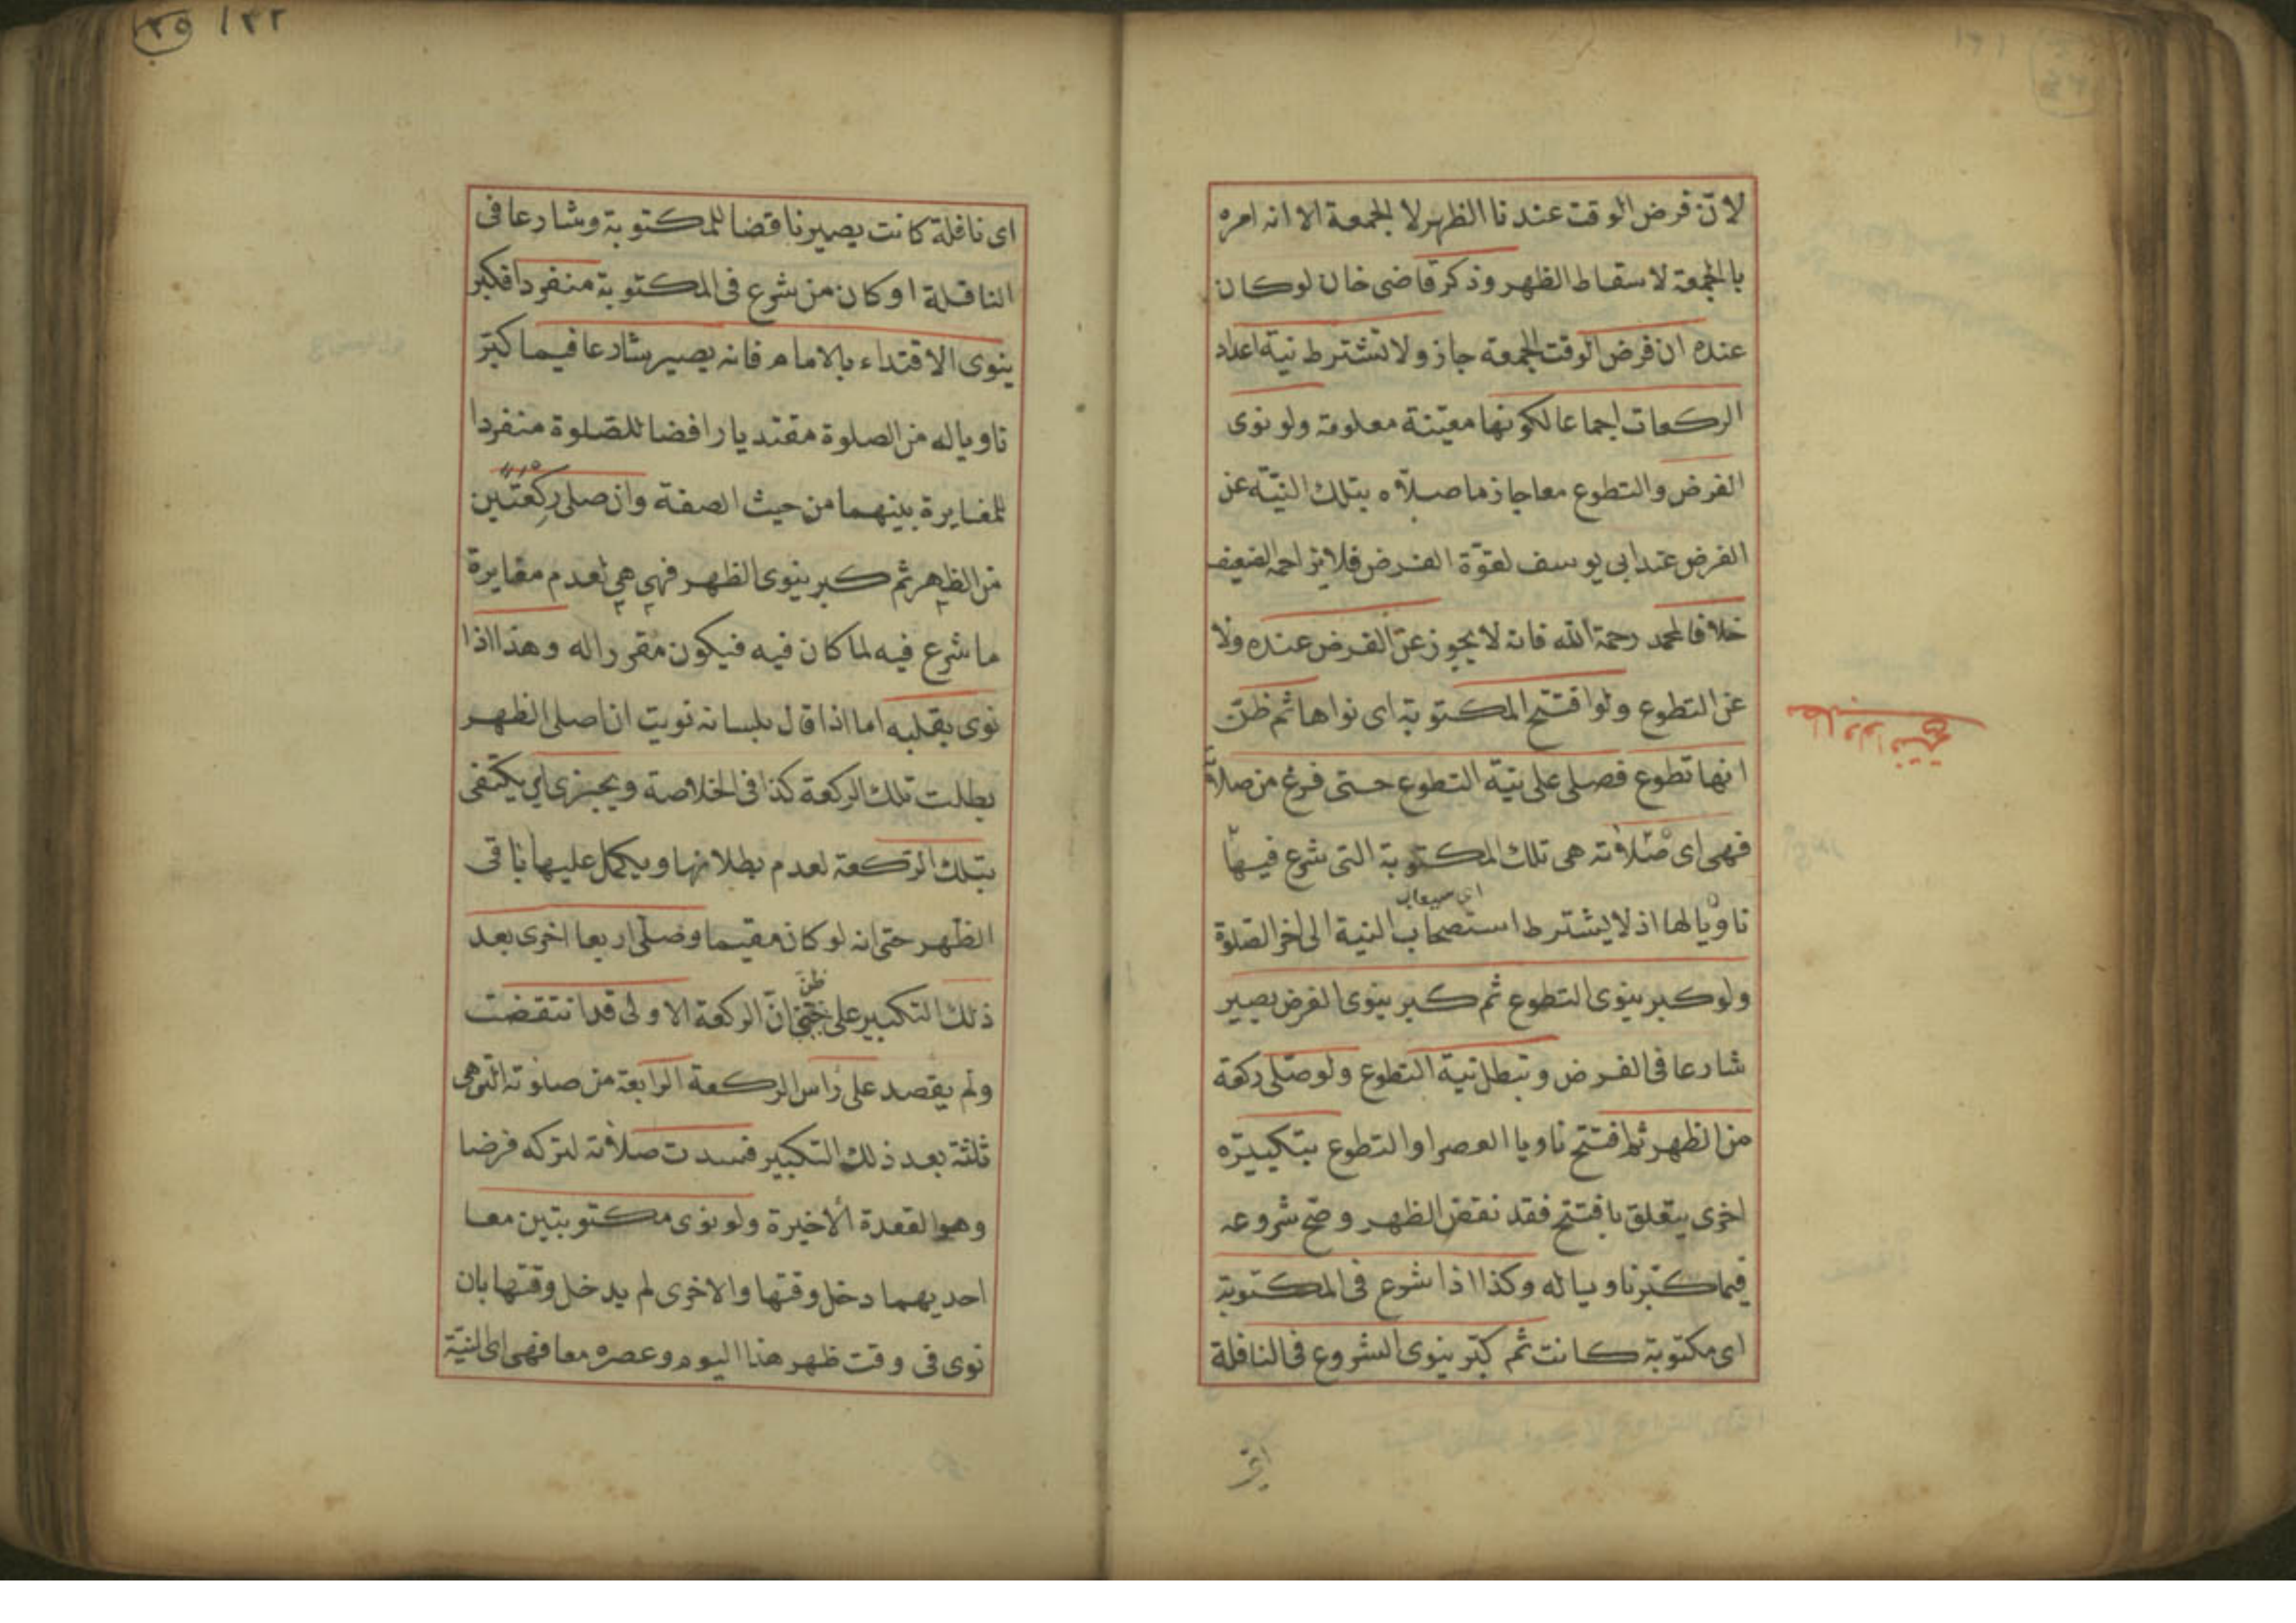 لانّ فرض الوقت عندنا الظهر لا الجمعة الا انه امره
بالجمعة لاسقاط الظهر وذكر قاضى خان لو كان
عنده ان فرض الوقت الجمعة جاز ولا تشترط نية اعداد
الركعات اجماعا لكونها معيّنة معلومة ولو نوى
الفرض والتطوع معا جاز ما صلاّه بتلك النيّة عن
الفرض عند ابى يوسف لقوّة الفرض فلا يزاحمه الضعيف
خلافا لمحمد رحمة الله فانه لا يجوز عن الفرض عنده ولا
عن التطوع ولو افتتح المكتوبة اى نواها ثم ظنّ
انها تطوع فصلى على نيّة التطوع حتى فرغ من صلاته
فهى اى صلاته هى تلك المكتوبة التى شرع فيها
ناويا لها اذ لا يشترط استصحاب النية الى اخر الصلوة
ولو كبر ينوى التطوع ثم كبر ينوى الفرض يصير
شارعا فى الفرض وتبطل نية التطوع ولو صلى ركعة
من الظهر ثم افتتح ناويا العصر او التطوع بتكبيره
اخرى يتعلق بافتتح فقد نقض الظهر وصح شروعه
فيما كبّر ناويا له وكذا اذا شرع فى المكتوبة
اى مكتوبة كانت ثم كبّر ينوى الشروع فى النافلة
١٣٢ ٣٥
اى نافلة كانت يصير ناقضا للمكتوبة وشارعا فى
النافلة او كان من شرع فى المكتوبة منفردا فكبر
ينوى الاقتداء بالامام فانه يصير شارعا فيما كبّر
ناويا له من الصلوة مقتديا رافضا للصلوة منفردا
للمغايرة بينهما من حيث الصفة وان صلى ركعتين
من الظهر ثم كبر ينوى الظهر فهى هى لعدم مغايرة
ما شرع فيه لما كان فيه فيكون مقررا له وهذا اذا
نوى بقلبه اما اذا قال بلسانه نويت ان اصلى الظهر
بطلت تلك الركعة كذا فى الخلاصة ويجتزى اى يكتفى
بتلك الركعة لعدم بطلانها ويكمل عليها باقى
الظهر حتى انه لو كان مقيما وصلّى اربعا اخرى بعد
ظنّ
ذلك التكبير على انّ الركعة الاولى قد انتقضت
ولم يقصد على راس الركعة الرابعة من صلوته التى هى
ثلثة بعد ذلك التكبير فسدت صلاته لتركه فرضا
وهو القعدة الاخيرة ولو نوى مكتوبتين معا
احديهما دخل وقتها والاخرى لم يدخل وقتها بان
نوى فى وقت ظهر هذا اليوم وعصره معا فهى اى النيّة